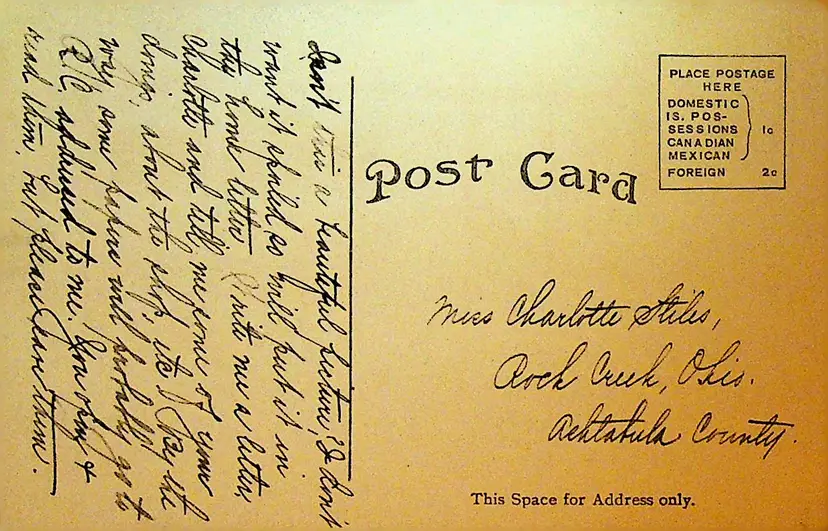 Isn't this a beautiful picture? I don't
want it spoiled so will put it in
this home letter. Write me a letter,
Charlotte and tell me some of your
doings, about the shop, etc. By the
way, some papers will probably go to
R.C. addressed to me. You open &
read them, but please save them.
POST CARD
PLACE POSTAGE
HERE
DOMESTIC
IS. POS-
SESSIONS
CANADIAN
MEXICAN
1c
FOREIGN 2c
Miss Charlotte Stiles,
Rock Creek, Ohio.
Ashtabula County.
This Space for Address only.